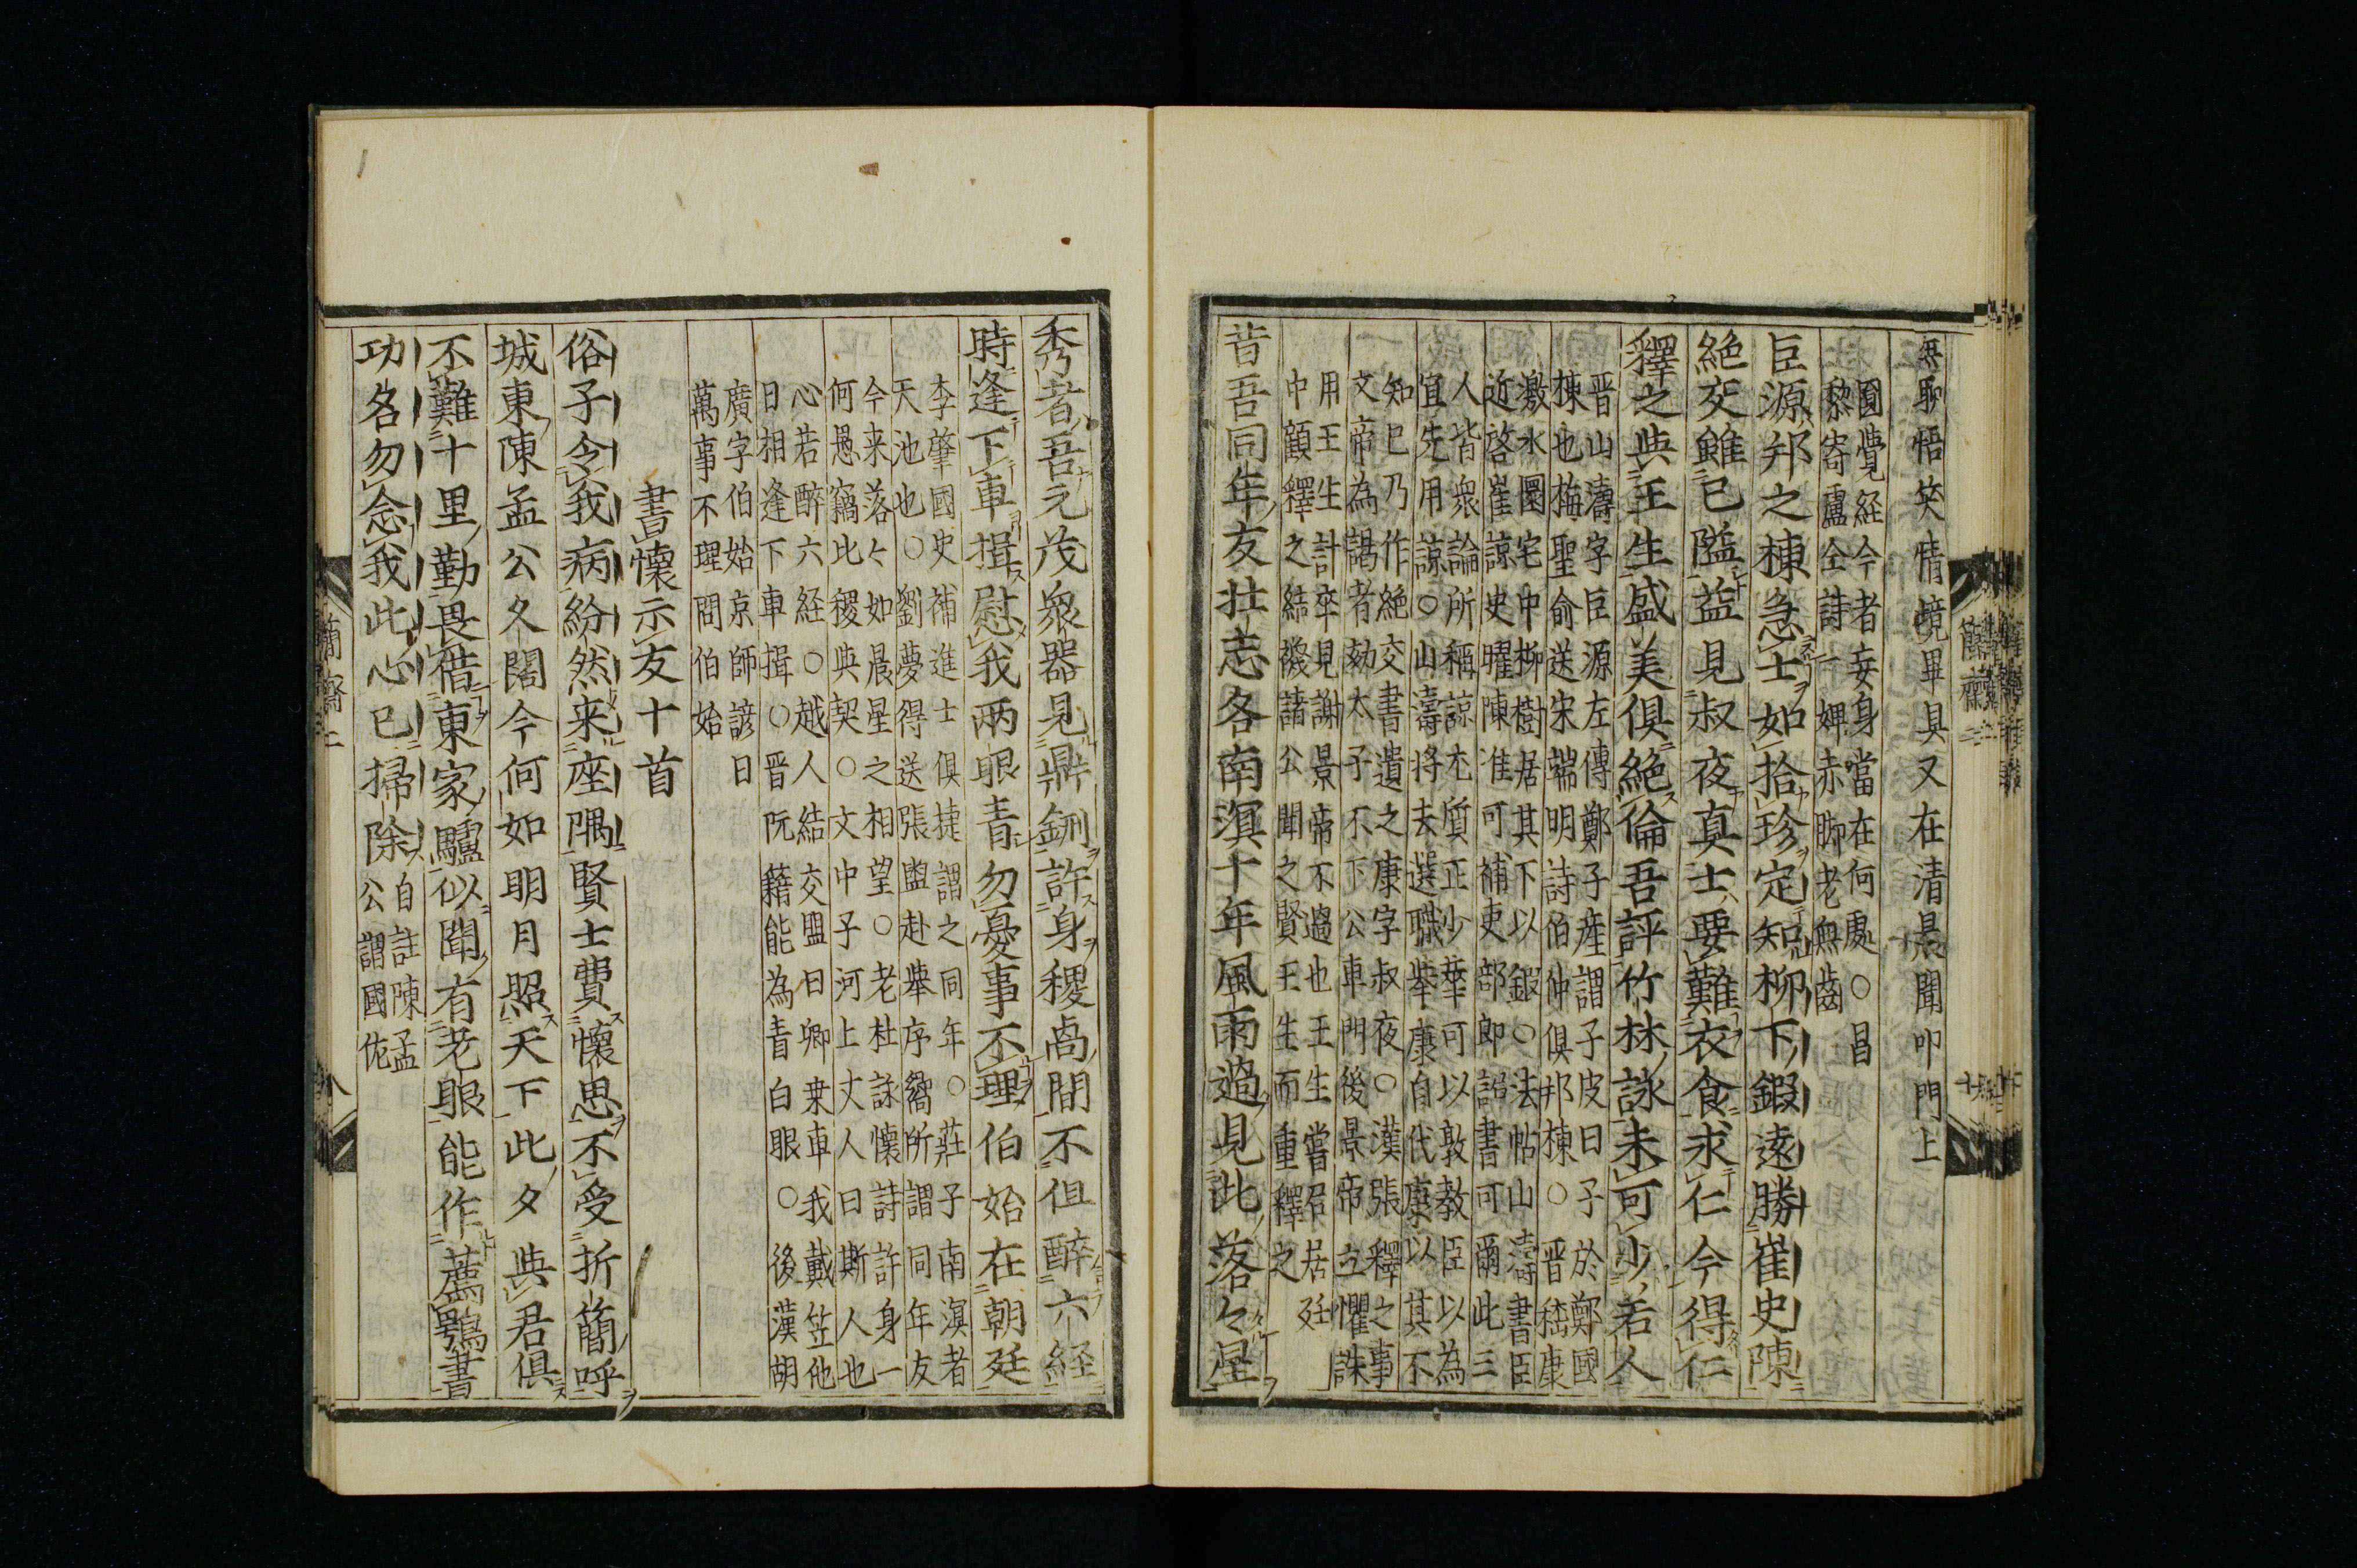 無聊悟笑情境畢具又在清晨聞叩門上
圓覺経今者妄身當在何處○昌
黎寄盧仝詩一婢赤脚老無齒
巨源邦之棟急士如拾珍定知柳下鍛遠勝崔史陳
絶交雖已隘益見叔夜真士要難衣食求仁今得仁
釋之與王生盛美俱絶倫吾評竹林詠未可少若人
晋山濤字臣源左傳鄭子産謂子皮曰子於鄭國
棟也梅聖俞送宋端明詩伯仲俱邦棟○晋嵇康
激水圜宅中栁樹居其下以鍛○法帖山濤書臣
近啓崔諒史曜陳准可補吏部郎詔書可爾此三
人皆衆論所稱諒尤質正少華可以敦教臣以為
宜先用諒○山濤将去選職舉康自代康以其不
知已乃作絶交書遺之康字叔夜○漢張釋之事
文帝為謁者劾太子不下公車門後景帝立懼誅
用王生計卒見謝景帝不過也王生嘗召居廷
中顧釋之結襪諸公聞之賢王生而重釋之
昔吾同年友壮志各南溟十年風雨過見此落々星
秀者吾元茂衆器見鼎鉶許身稷卨間不但醉六経
時逢下車揖慰我兩眼青勿憂事不理伯始在朝廷
李肇國史補進士俱捷謂之同年○莊子南溟者
天池也○劉夢得送張盥赴舉序嚮所謂同年友
今来落々如晨星之相望○老杜詠懷詩許身一
何愚竊比稷與契○文中子河上丈人曰斯人也
心若醉六経○越人結交盟曰卿乗車我戴笠他
日相逢下車揖○晋阮籍能為青白眼○後漢胡
廣字伯始京師諺曰
萬事不理問伯始
書懷示友十首
俗子令我病紛然来座隅賢士費懷思不受折簡呼
城東陳孟公久闊今何如明月照天下此夕與君俱
不難十里勤畏借東家驢似聞有老眼能作薦鶚書
功名勿念我此心已掃除
自註陳孟
公謂國佐
簡齋二
八